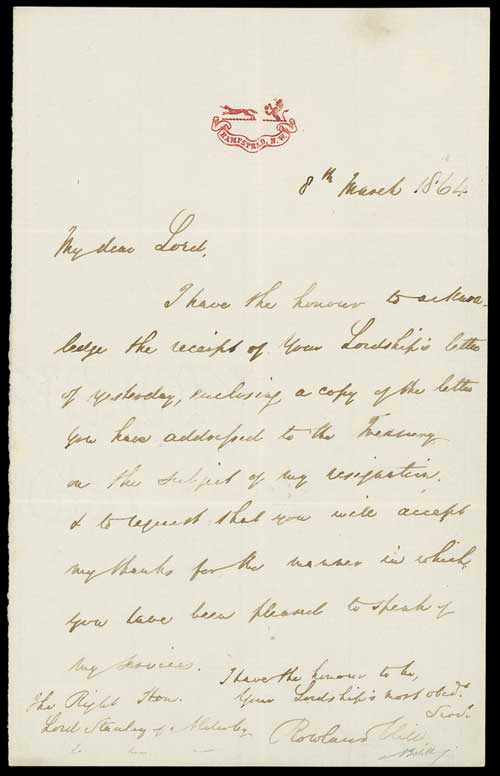 HAMPSTEAD, N.W.
8th March 1864.
My dear Lord,
I have the honour to acknow-
ledge the receipt of Your Lordship's letter
of yesterday, enclosing a copy of the letter
you have addressed to the Treasury
on the subject of my resignation,
& to request that you will accept
my thanks for the manner in which
you have been pleased to speak of
my services.
I have the honour to be,
Your Lordship's most obedt.
Servt.
Rowland Hill
The Right Hon.
Lord Stanley of Alderley